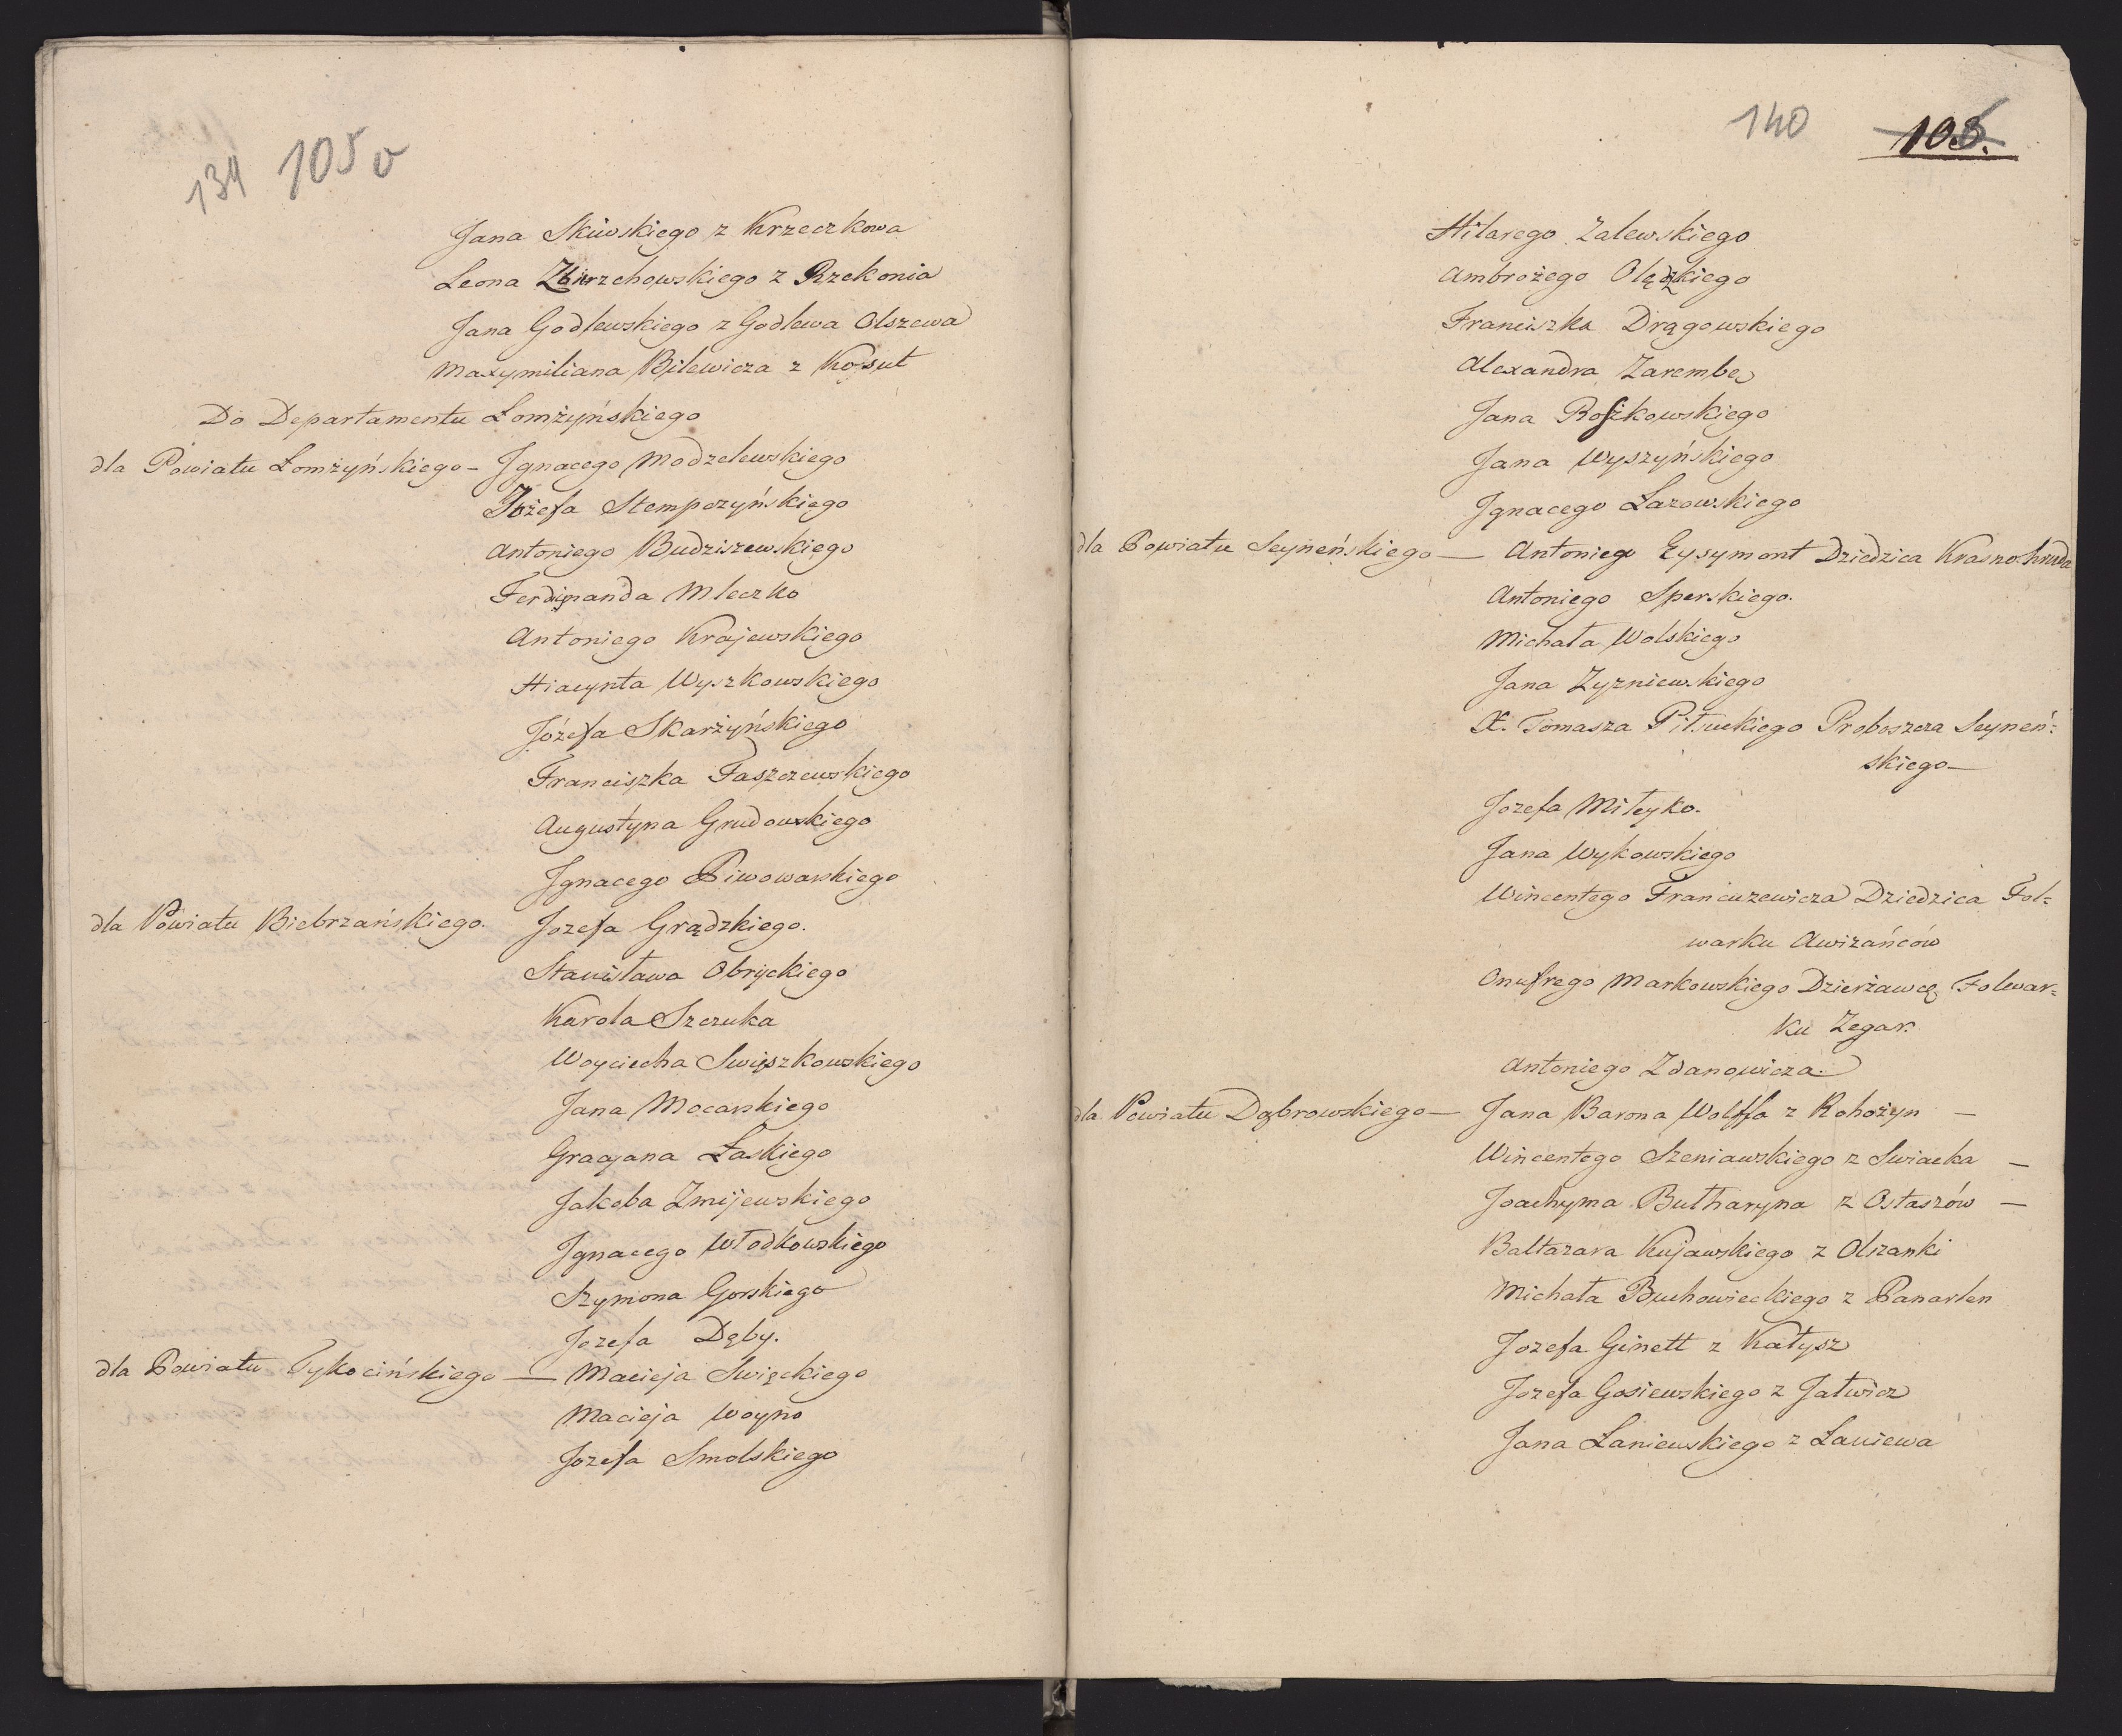 134 105 v
Jana Skiwskiego z Krzeczkowa
Leona Zbierzchowskiego z Rzekonia
Jana Godlewskiego z Godlewa Olszewa
Maxymiliana Bilewicza z Kosut
Do Departamentu Łomżyńskiego
dla Powiatu Łomżyńskiego – Jgnacego Modzelewskiego
Józefa Stempczyńskiego
Antoniego Budziszewskiego
Ferdinanda Mleczko
Antoniego Krajewskiego
Hiacynta Wyszkowskiego
Józefa Skarżyńskiego
Franciszka Faszczewskiego
Augustyna Grudowskiego
Jgnacego Piwowarskiego
dla Powiatu Biebrzańskiego. Jozefa Grądzkiego.
Stanisława Obryckiego
Karola Szczuka
Woyciecha Swięszkowskiego
Jana Mocarskiego
Gracyana Łaskiego
Jakoba Zmijewskiego
Jgnacego Włodkowskiego
Szymona Gorskiego
Jozefa Dęby.
dla Powiatu Tykocińskiego — Macieja Swięckiego
Macieja Woyno
Jozefa Smolskiego
140 105.
Hilarego Zalewskiego
Ambrożego Olędzkiego
Franciszka Drągowskiego
Alexandra Zarembe
Jana Roszkowskiego
Jana Wyszyńskiego
Jgnacego Łazowskiego
dla Powiatu Seyneńskiego — Antoniego Eysymont Dziedzica Krasnohruda
Antoniego Sperskiego.
Michała Wolskiego
Jana Zyzniewskiego
X. Tomasza Pitsuckiego Proboszcza Seyneń:
skiego —
Jozefa Mileyko.
Jana Wykowskiego
Wincentego Francuzewicza Dziedzica Fol=
warku Awizańców
Onufrego Markowskiego Dzierżawcę Folwar=
ku Zegar.
Antoniego Zdanowicza.
dla Powiatu Dąbrowskiego — Jana Barona Wolffa z Rohożyn —
Wincentego Szeniawskiego z Swiacka —
Joachyma Butharyna z Ostaszów —
Baltazara Kujawskiego z Olszanki
Michała Buchowieckiego z Panarlen
Jozefa Ginett z Katysz
Jozefa Gosiewskiego z Jatwicz
Jana Łaniewskiego z Łaniewa